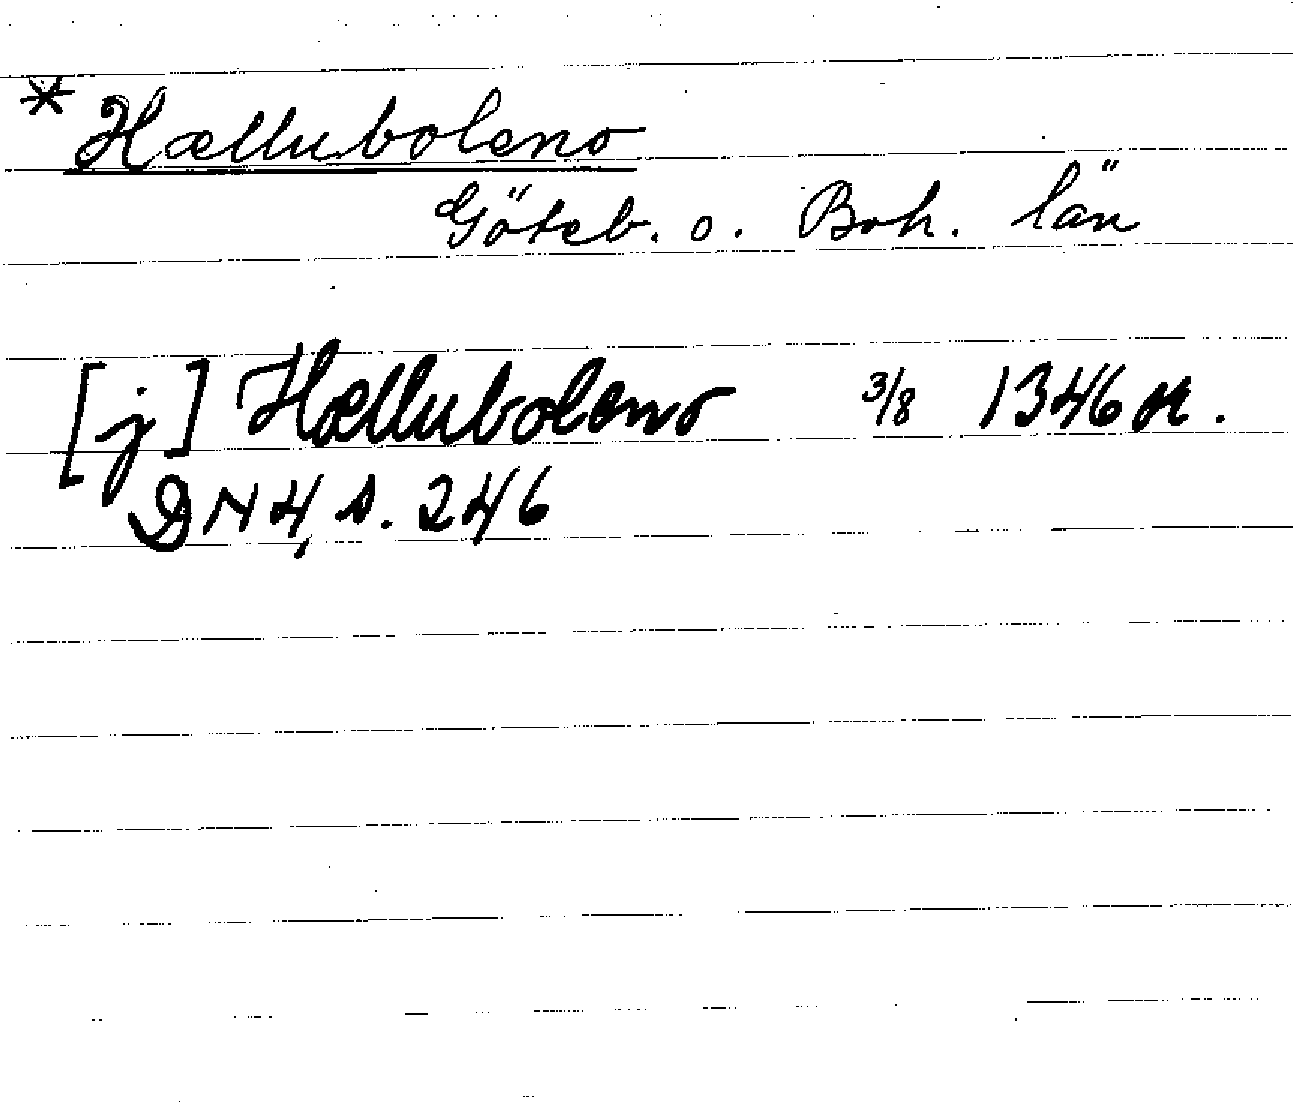 * Hælluboleno
Göteb. o. Boh. län
[j] Hælluboleno 3/8 1346 or.
DN 4, s. 246